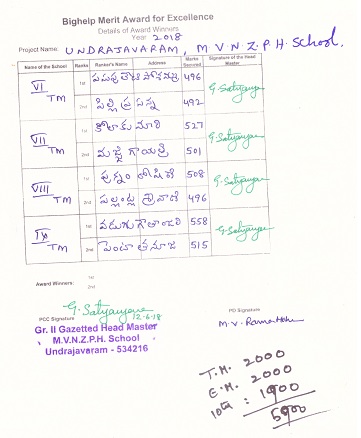 Bighelp Merit Award for Excellence
Details of Award Winners
Year 2018
Project Name: UNDRAJAVARAM, M.V.N.Z.P.H. School.
Name of the School Ranks Ranker's Name Address Marks Secured Signature of the Head Master
VI TM 1st 496
2nd పిల్లి ప్రసన్న 492
VII TM 1st కోలా కుమారి 527
2nd మజ్జి గాయత్రి 501
VIII TM 1st 508
2nd శ్రావణి 496
IX TM 1st గీతాంజలి 558
2nd పెంటా తనూజ 515
Award Winners: 1st
2nd
G. Satyanarayana
PCC Signature 12-6-18
PD Signature
Gr. II Gazetted Head Master
M.V.N.Z.P.H. School
Undrajavaram - 534216
T.M. 2000
E.M. 2000
10th : 1900
5900